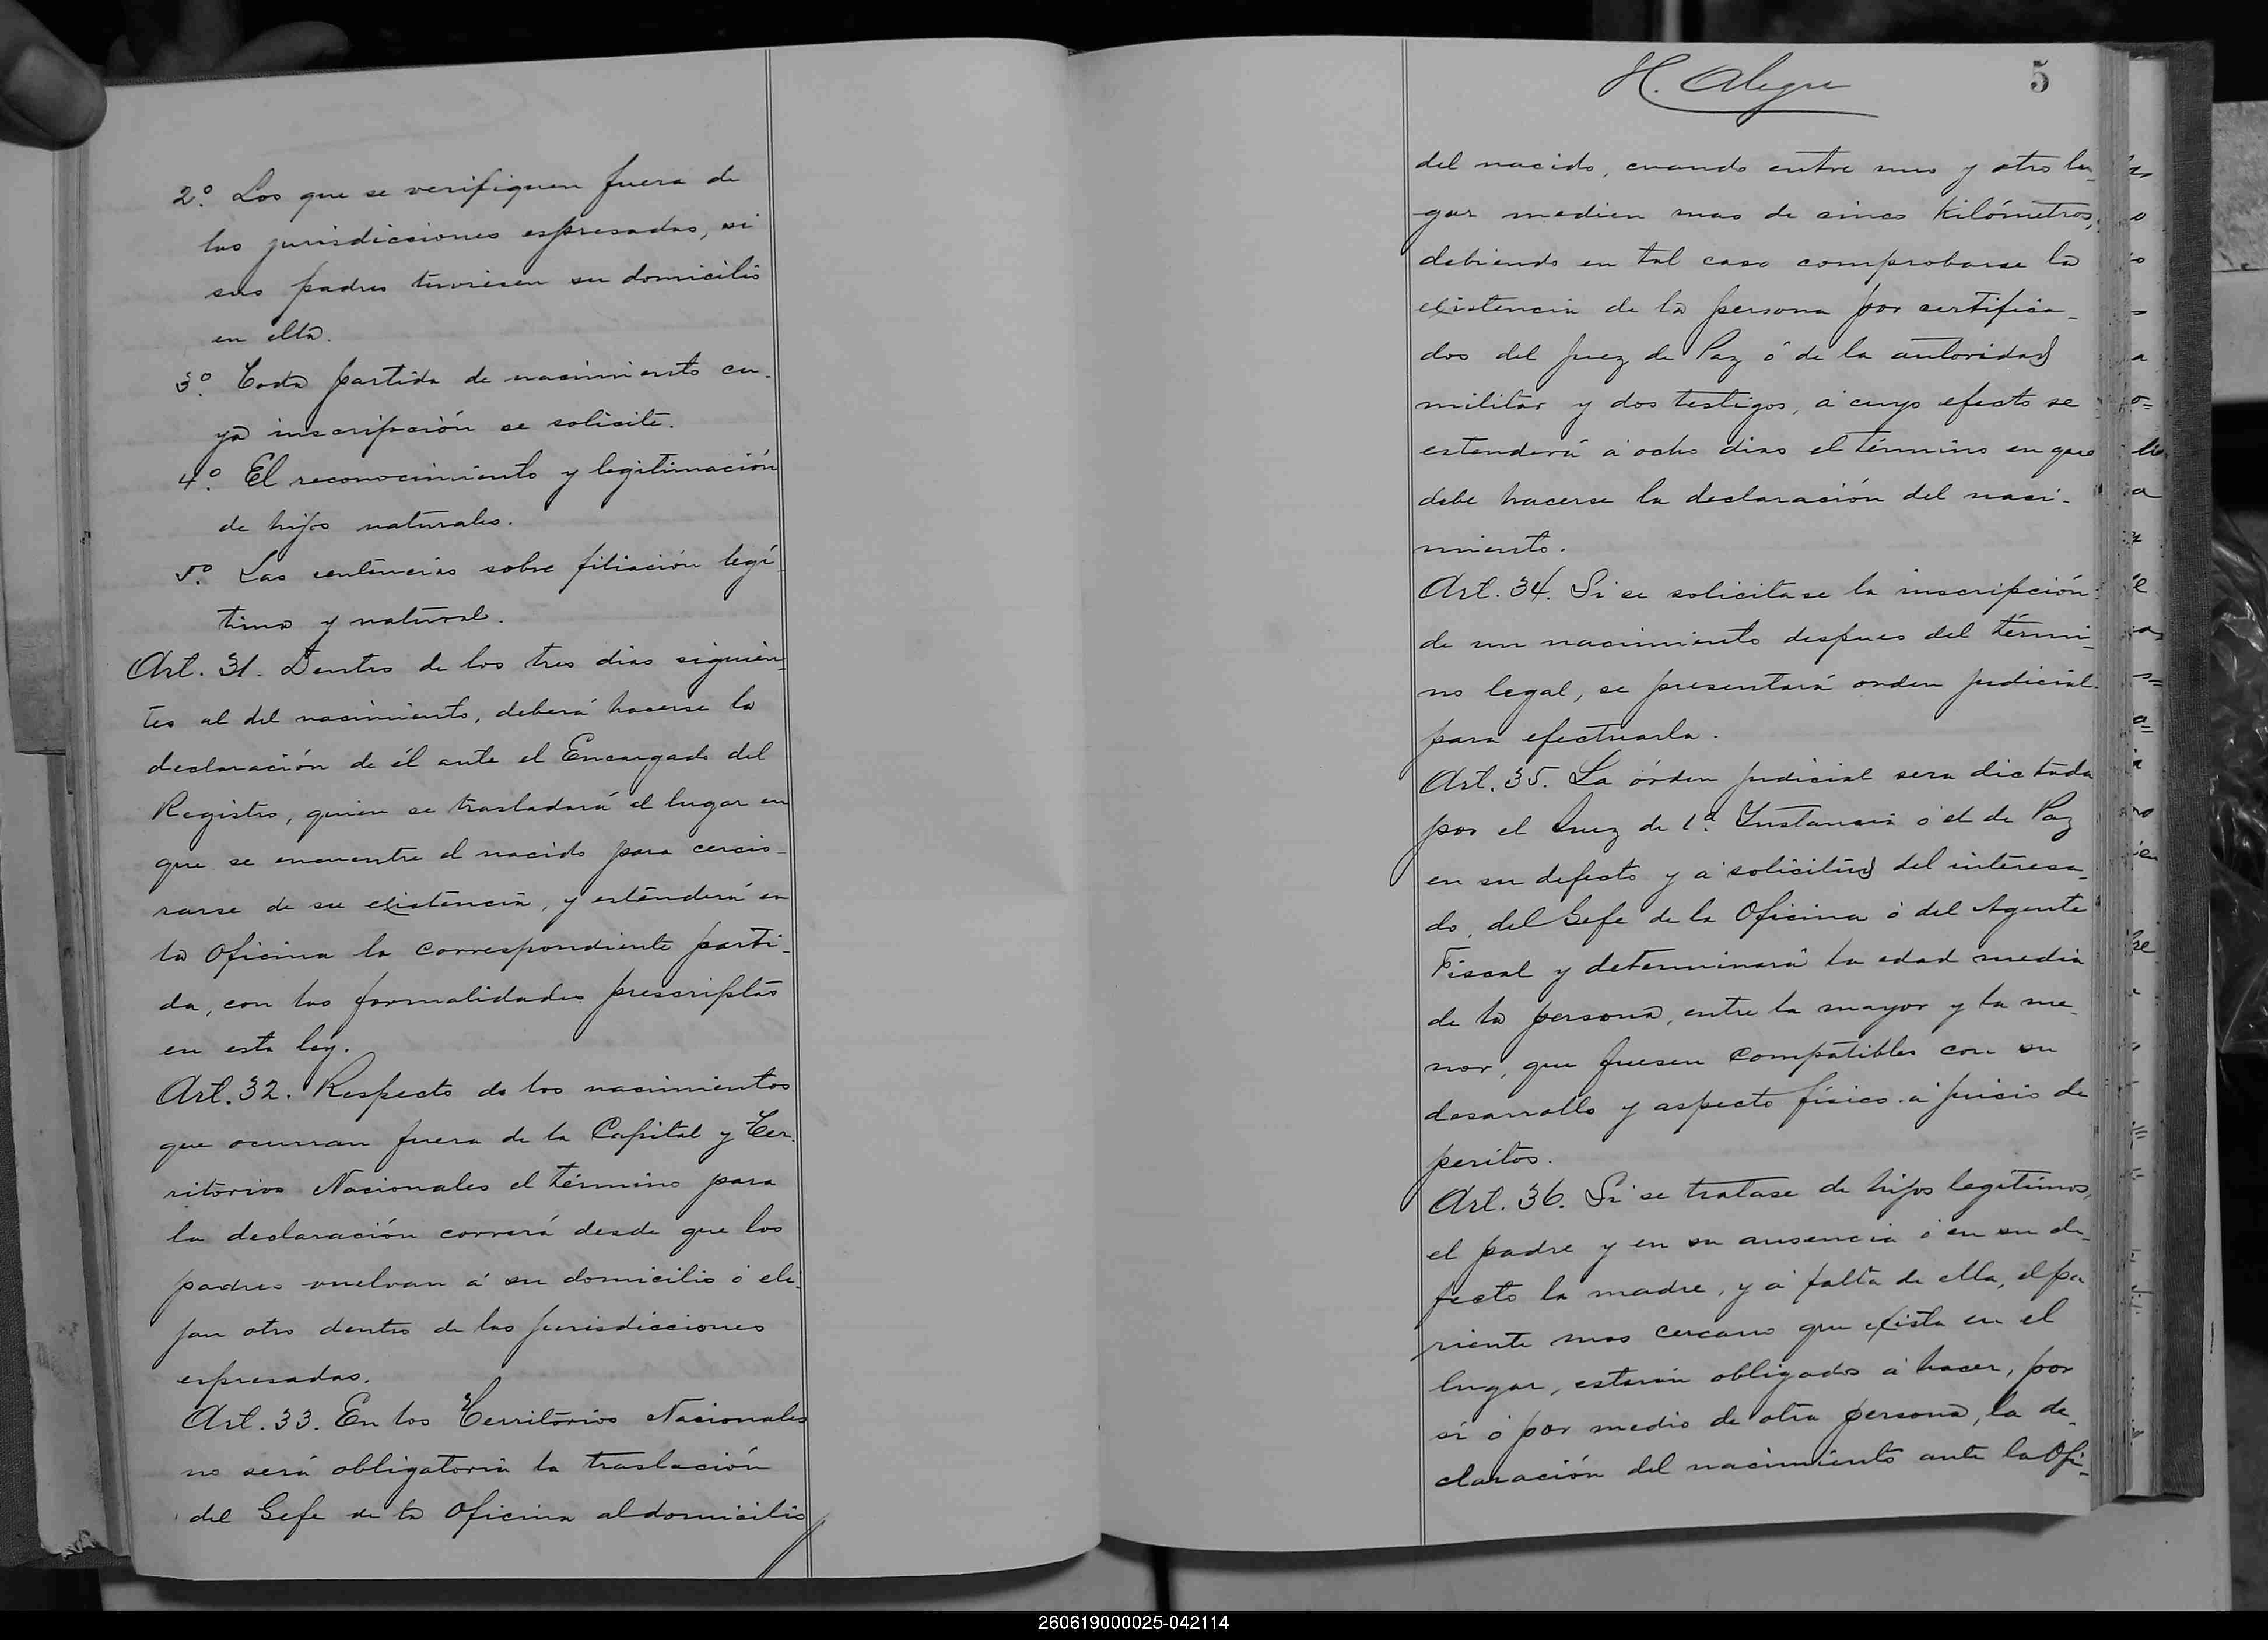 2º. Los que se verifiquen fuera de
las jurisdicciones espresadas, si
sus padres tuviesen su domicilio
en ella.
3º. Toda partida de nacimiento cu-
ya inscripción se solicite.
4º. El reconocimiento y legitimación
de hijos naturales.
5º. Las sentencias sobre filiación legí-
tima y natural.
Art. 31. Dentro de los tres dias siguien-
tes al del nacimiento, deberá hacerse la
declaración de él ante el Encargado del
Registro, quien se trasladará al lugar en
que se encuentre el nacido para cercio-
rarse de su existencia, y estenderá en
la Oficina la correspondiente parti-
da, con las formalidades prescriptas
en esta ley.
Art. 32. Respecto de los nacimientos
que ocurran fuera de la Capital y Ter-
ritorios Nacionales el término para
la declaración correrá desde que los
padres vuelvan á su domicilio ó eli-
jan otro dentro de las jurisdicciones
espresadas.
Art. 33. En los Territorios Nacionales
no será obligatoria la traslación
del Gefe de la Oficina al domicilio
H. Alegre
5
del nacido, cuando entre uno y otro lu-
gar medien mas de cinco kilómetros,
debiendo en tal caso comprobarse la
existencia de la persona por certifica-
dos del Juez de Paz ó de la autoridad
militar y dos testigos, á cuyo efecto se
estenderá á ocho dias el término en que
debe hacerse la declaración del naci-
miento.
Art. 34. Si se solicitase la inscripción
de un nacimiento despues del térmi-
no legal, se presentará orden judicial
para efectuarla.
Art. 35. La órden judicial sera dictada
por el Juez de 1ª. Instancia ó el de Paz
en su defecto y á solicitud del interesa-
do, del Gefe de la Oficina ó del Agente
Fiscal y determinará la edad media
de la persona, entre la mayor y la me-
nor, que fuesen compatibles con su
desarrollo y aspecto físico á juicio de
peritos.
Art. 36. Si se tratase de hijos legítimos,
el padre y en su ausencia ó en su de-
fecto la madre, y á falta de ella, el pa-
riente mas cercano que exista en el
lugar, estarán obligados á hacer, por
sí ó por medio de otra persona, la de-
claración del nacimiento ante la Ofi-
260619000025-042114